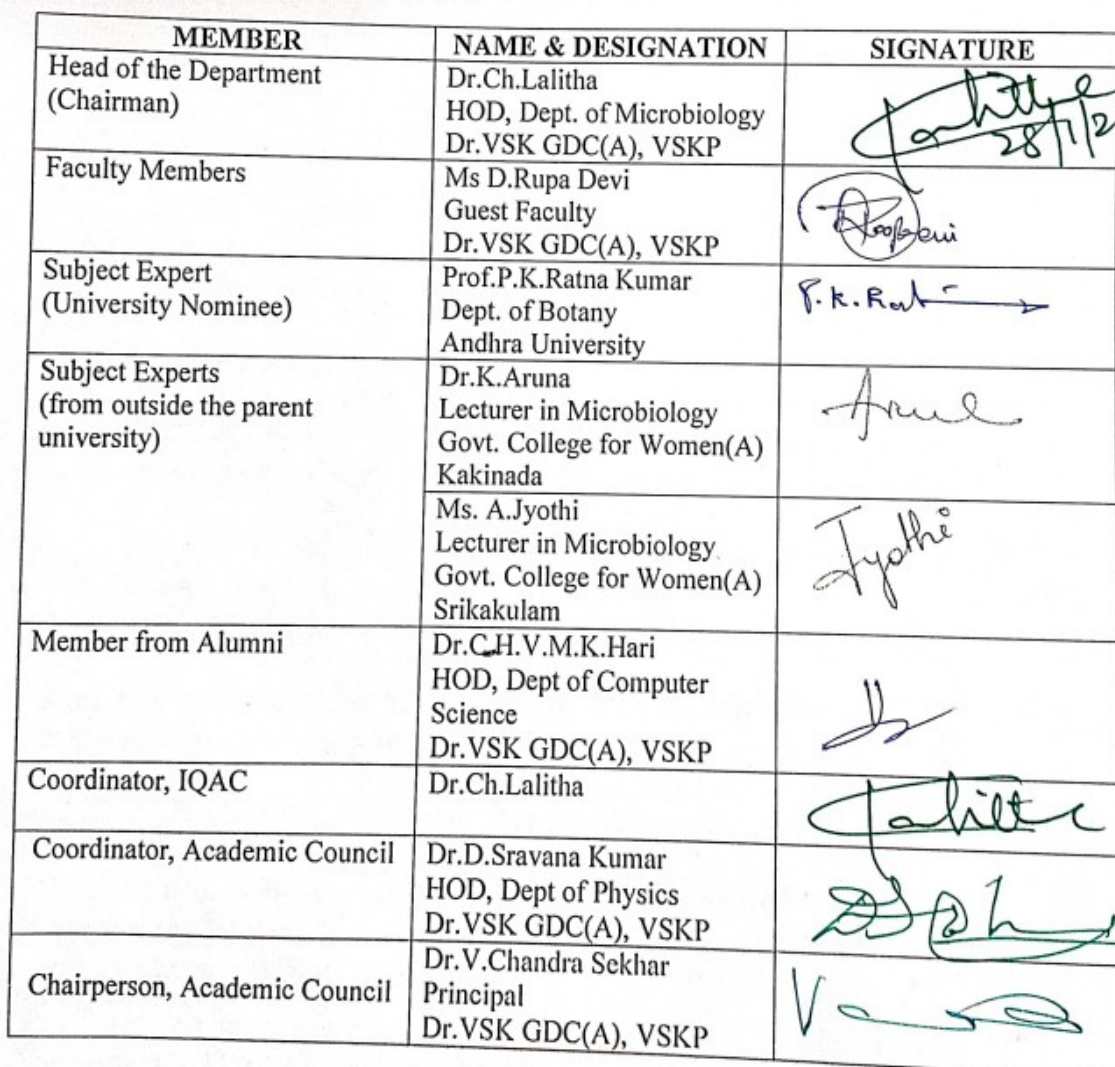 MEMBER NAME & DESIGNATION SIGNATURE
Head of the Department
(Chairman)
Dr.Ch.Lalitha
HOD, Dept. of Microbiology
Dr.VSK GDC(A), VSKP
28/1/2
Faculty Members
Ms D.Rupa Devi
Guest Faculty
Dr.VSK GDC(A), VSKP
Subject Expert
(University Nominee)
Prof.P.K.Ratna Kumar
Dept. of Botany
Andhra University
P.K.Rat
Subject Experts
(from outside the parent
university)
Dr.K.Aruna
Lecturer in Microbiology
Govt. College for Women(A)
Kakinada
Ms. A.Jyothi
Lecturer in Microbiology
Govt. College for Women(A)
Srikakulam
Jyothi
Member from Alumni
Dr.C.H.V.M.K.Hari
HOD, Dept of Computer
Science
Dr.VSK GDC(A), VSKP
Coordinator, IQAC
Dr.Ch.Lalitha
Coordinator, Academic Council
Dr.D.Sravana Kumar
HOD, Dept of Physics
Dr.VSK GDC(A), VSKP
Chairperson, Academic Council
Dr.V.Chandra Sekhar
Principal
Dr.VSK GDC(A), VSKP